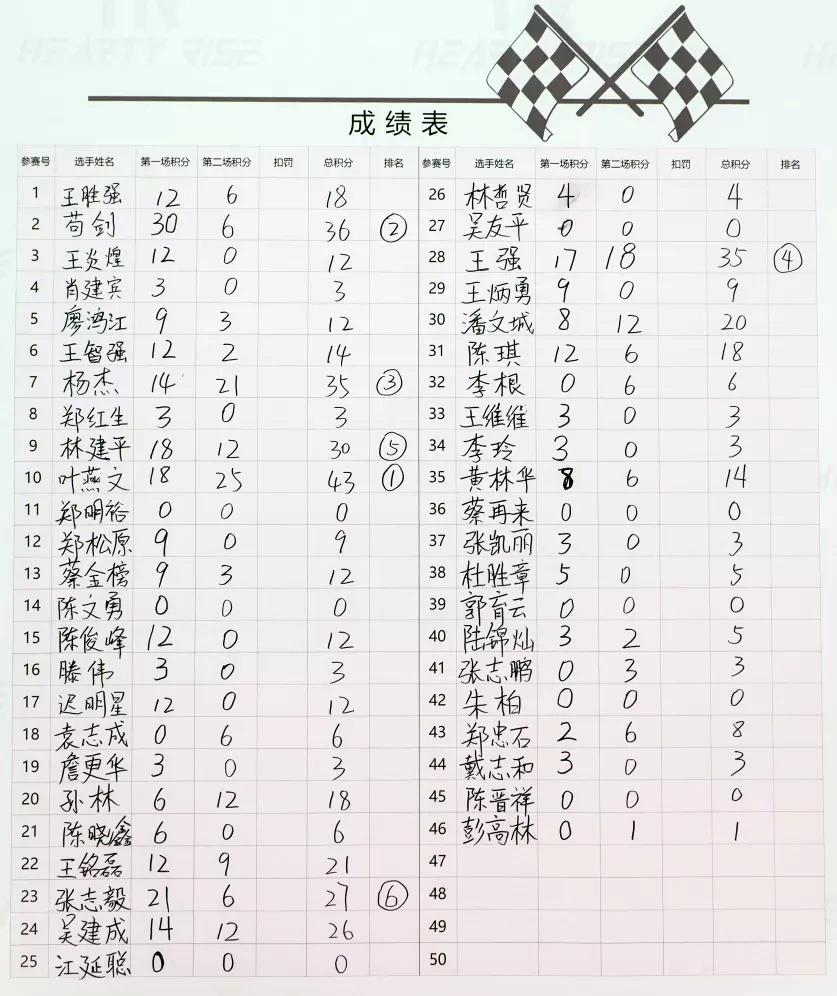 HEARTY RISE HEARTY RISE
成绩表
参赛号 选手姓名 第一场积分 第二场积分 扣罚 总积分 排名 参赛号 选手姓名 第一场积分 第二场积分 扣罚 总积分 排名
1 王胜强 12 6 18 26 林哲贤 4 0 4
2 苟剑 30 6 36 ② 27 吴友平 0 0 0
3 王炎煌 12 0 12 28 王强 17 18 35 ④
4 肖建宾 3 0 3 29 王炳勇 9 0 9
5 廖鸿江 9 3 12 30 潘文城 8 12 20
6 王智强 12 2 14 31 陈琪 12 6 18
7 杨杰 14 21 35 ③ 32 李根 0 6 6
8 郑红生 3 0 3 33 王维维 3 0 3
9 林建平 18 12 30 ⑤ 34 李玲 3 0 3
10 叶燕文 18 25 43 ① 35 黄林华 8 6 14
11 郑明裕 0 0 0 36 蔡再来 0 0 0
12 郑松原 9 0 9 37 张凯丽 3 0 3
13 蔡金榜 9 3 12 38 杜胜章 5 0 5
14 陈文勇 0 0 0 39 郭育云 0 0 0
15 陈俊峰 12 0 12 40 陆锦灿 3 2 5
16 滕伟 3 0 3 41 张志鹏 0 3 3
17 迟明星 12 0 12 42 朱柏 0 0 0
18 袁志成 0 6 6 43 郑忠石 2 6 8
19 詹更华 3 0 3 44 戴志和 3 0 3
20 孙林 6 12 18 45 陈晋祥 0 0 0
21 陈晓鑫 6 0 6 46 彭高林 0 1 1
22 王铭磊 12 9 21 47
23 张志毅 21 6 27 ⑥ 48
24 吴建成 14 12 26 49
25 江延聪 0 0 0 50